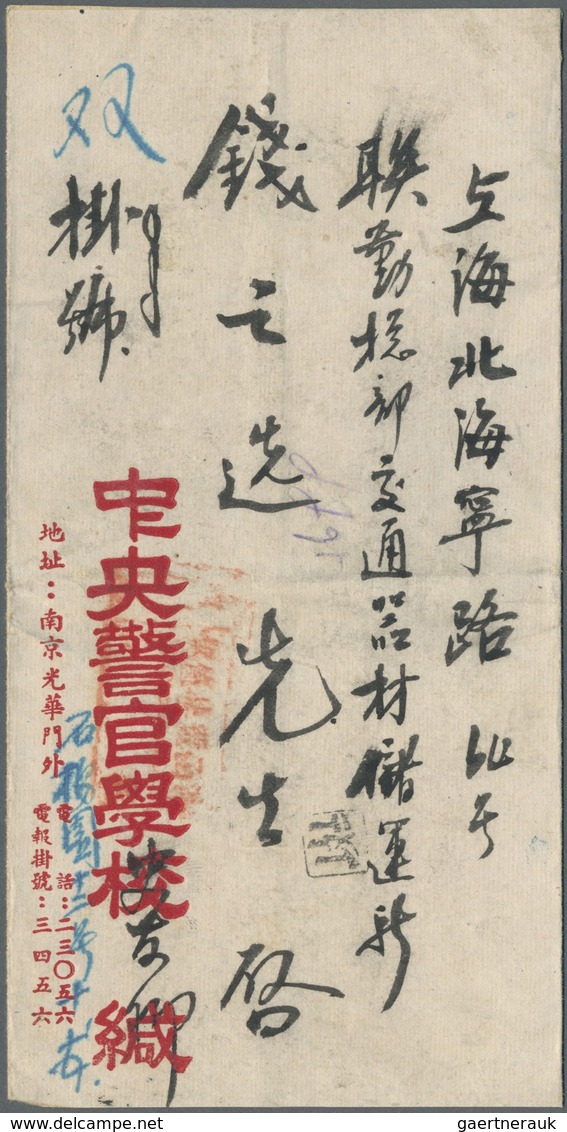 上海北海寧路 61号
聯勤总部交通器材儲運所
錢之选先生 啓
双掛號
中央警官學校 緘
地址：南京光華門外
電話：二三〇五六
電報掛號：三四五六
gaertnerauk
www.delcampe.net